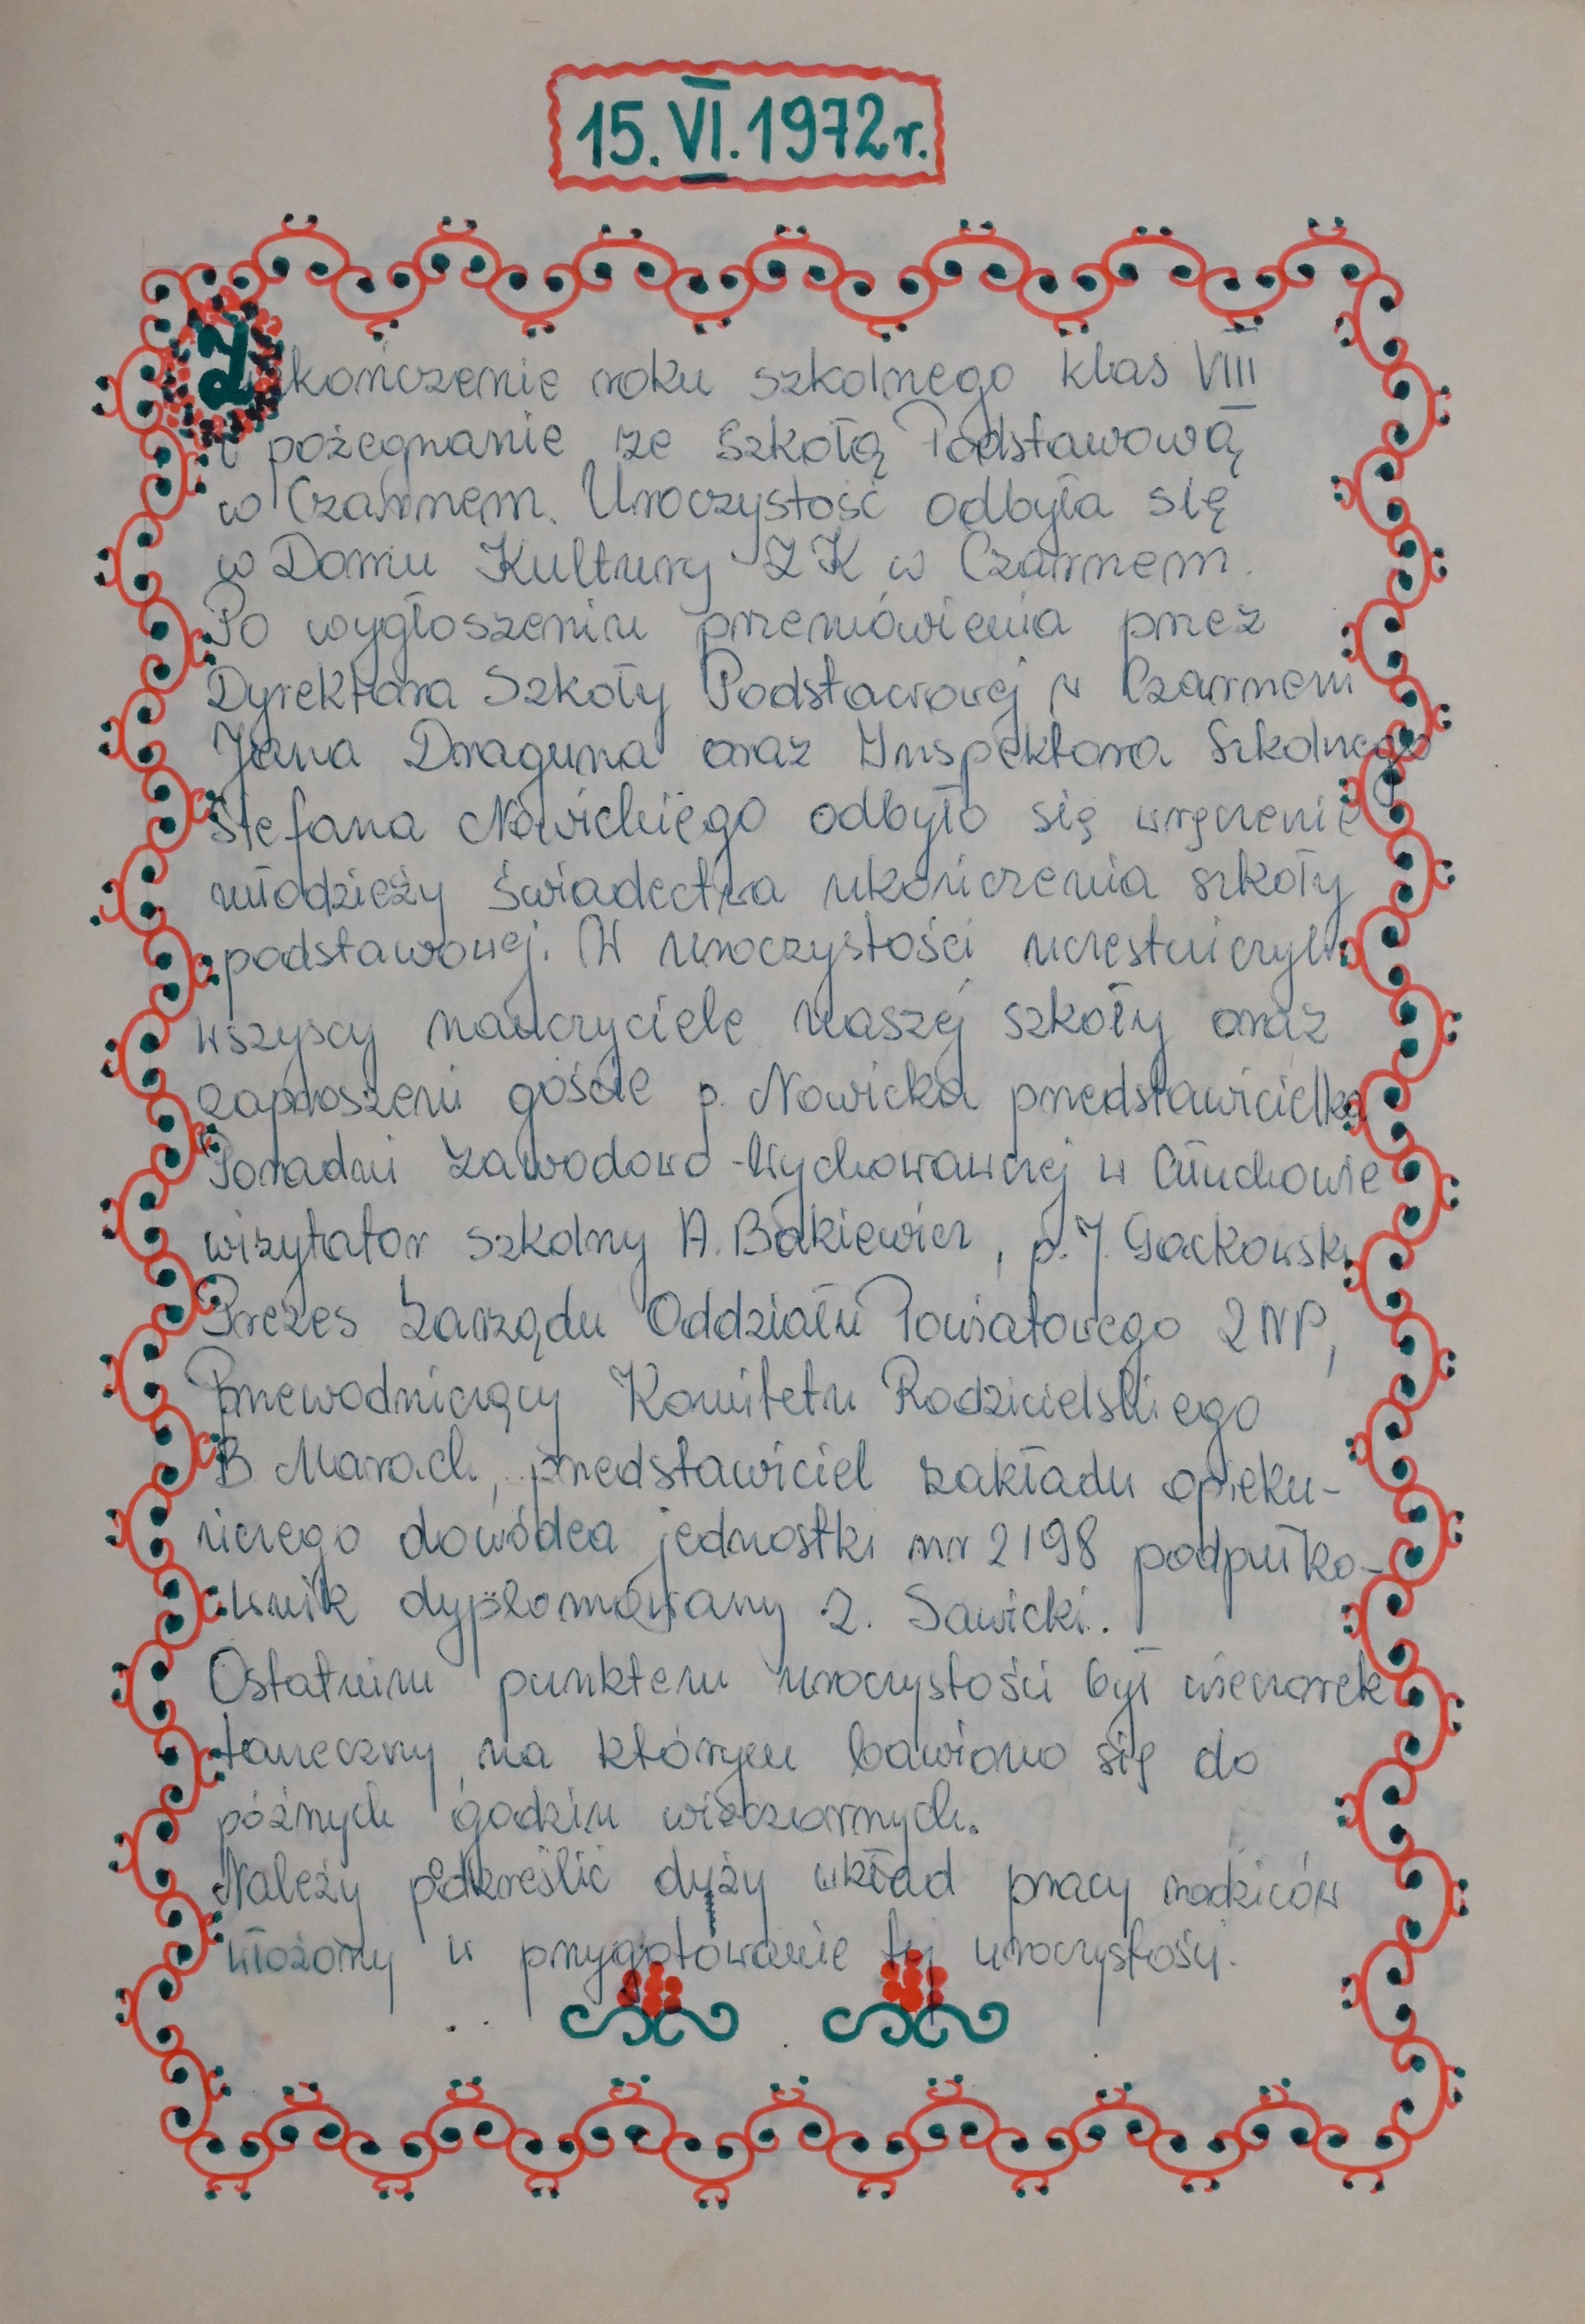 15.VI.1972r.
Zakończenie roku szkolnego klas VIII
i pożegnanie ze Szkołą Podstawową
w Czarnem. Uroczystość odbyła się
w Domu Kultury ZK w Czarnem.
Po wygłoszeniu przemówienia przez
Dyrektora Szkoły Podstawowej w Czarnem
Jana Draguna oraz Inspektora Szkolnego
Stefana Nowickiego odbyło się wręczenie
młodzieży świadectwa ukończenia szkoły
podstawowej. W uroczystości uczestniczyli
wszyscy nauczyciele naszej szkoły oraz
zaproszeni goście p. Nowicka przedstawicielka
Poradni Zawodowo-Wychowawczej w Człuchowie
wizytator szkolny A. Bakiewicz, p. J. Gackowski
Prezes Zarządu Oddziału Powiatowego ZNP,
Przewodniczący Komitetu Rodzicielskiego
B Maroch, przedstawiciel zakładu opieku-
ńczego dowódca jednostki nr 2198 podpułko-
wnik dyplomowany Z. Sawicki.
Ostatnim punktem uroczystości był wieczorek
taneczny, na którym bawiono się do
późnych godzin wieczornych.
Należy podkreślić duży wkład pracy rodziców
włożony w przygotowanie tej uroczystości.